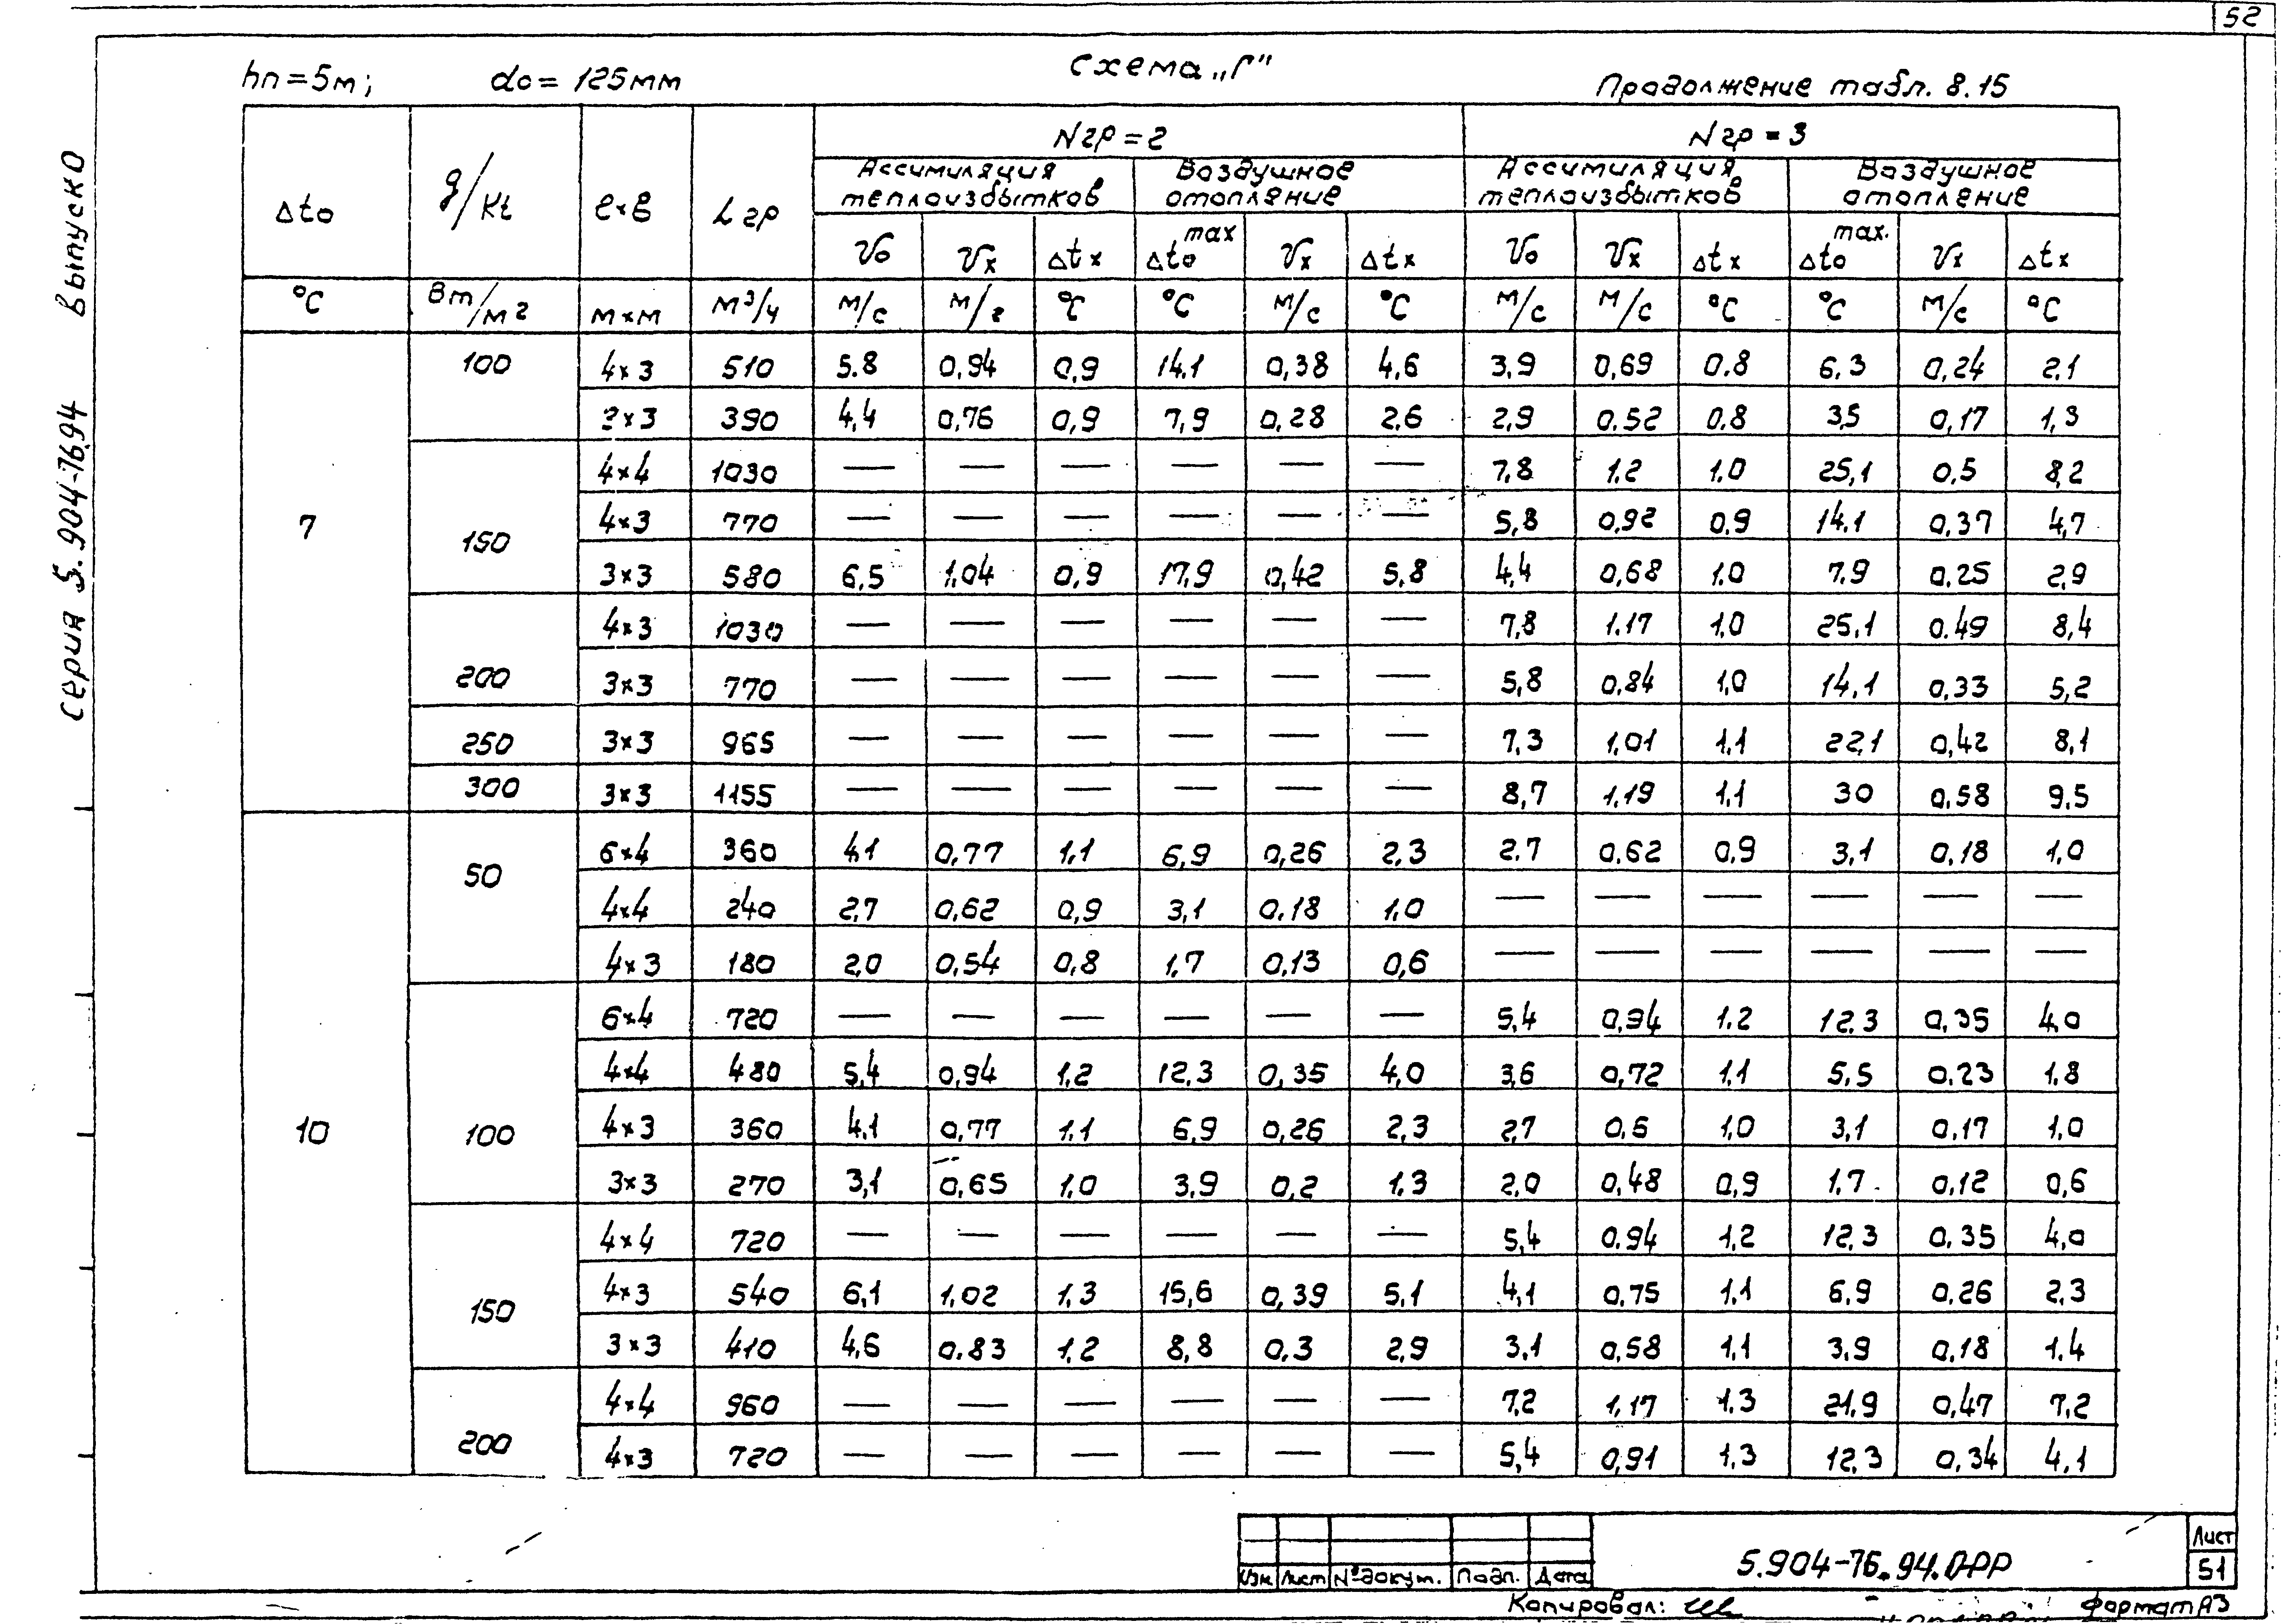 52
Схема „Г"
hп = 5м; do = 125мм
Продолжение табл. 8.15
Серия 5.904-76.94 Выпуск 0
Δto | g/Kt | l×в | L гр | N гр = 2 | N гр = 3
Ассимиляция теплоизбытков | Воздушное отопление | Ассимиляция теплоизбытков | Воздушное отопление
Vo | Vx | Δtx | Δto max | Vx | Δtx | Vo | Vx | Δtx | Δto max. | Vx | Δtx
°C | Вт/м2 | м×м | м3/ч | м/с | м/г | °C | °C | м/с | °C | м/с | м/с | °C | °C | м/с | °C
7 | 100 | 4×3 | 510 | 5.8 | 0,94 | 0,9 | 14.1 | 0,38 | 4,6 | 3,9 | 0,69 | 0.8 | 6,3 | 0,24 | 2,1
2×3 | 390 | 4,4 | 0,76 | 0,9 | 7,9 | 0,28 | 2,6 | 2,9 | 0.52 | 0,8 | 3,5 | 0,17 | 1,3
150 | 4×4 | 1030 | — | — | — | — | — | — | 7,8 | 1,2 | 1,0 | 25,1 | 0,5 | 8,2
4×3 | 770 | — | — | — | — | — | — | 5,8 | 0,92 | 0,9 | 14.1 | 0,37 | 4,7
3×3 | 580 | 6,5 | 1,04 | 0,9 | 17,9 | 0,42 | 5,8 | 4,4 | 0,68 | 1,0 | 7,9 | 0,25 | 2,9
200 | 4×3 | 1030 | — | — | — | — | — | — | 7,8 | 1.17 | 1,0 | 25,1 | 0.49 | 8,4
3×3 | 770 | — | — | — | — | — | — | 5,8 | 0,84 | 1,0 | 14,1 | 0,33 | 5,2
250 | 3×3 | 965 | — | — | — | — | — | — | 7,3 | 1,01 | 1,1 | 22,1 | 0,42 | 8,1
300 | 3×3 | 1155 | — | — | — | — | — | — | 8,7 | 1,19 | 1,1 | 30 | 0,58 | 9,5
10 | 50 | 6×4 | 360 | 4,1 | 0,77 | 1,1 | 6,9 | 0,26 | 2,3 | 2,7 | 0,62 | 0,9 | 3,1 | 0,18 | 1,0
4×4 | 240 | 2,7 | 0,62 | 0,9 | 3,1 | 0,18 | 1,0 | — | — | — | — | — | —
4×3 | 180 | 2,0 | 0,54 | 0,8 | 1,7 | 0,13 | 0,6 | — | — | — | — | — | —
100 | 6×4 | 720 | — | — | — | — | — | — | 5,4 | 0,94 | 1,2 | 12,3 | 0,35 | 4,0
4×4 | 480 | 5,4 | 0,94 | 1,2 | 12,3 | 0,35 | 4,0 | 3,6 | 0,72 | 1,1 | 5,5 | 0,23 | 1,8
4×3 | 360 | 4,1 | 0,77 | 1,1 | 6,9 | 0,26 | 2,3 | 2,7 | 0,6 | 1,0 | 3,1 | 0,17 | 1,0
3×3 | 270 | 3,1 | 0,65 | 1,0 | 3,9 | 0,2 | 1,3 | 2,0 | 0,48 | 0,9 | 1,7 | 0,12 | 0,6
150 | 4×4 | 720 | — | — | — | — | — | — | 5,4 | 0.94 | 1,2 | 12,3 | 0,35 | 4,0
4×3 | 540 | 6,1 | 1,02 | 1,3 | 15,6 | 0,39 | 5,1 | 4,1 | 0,75 | 1,1 | 6,9 | 0,26 | 2,3
3×3 | 410 | 4,6 | 0.83 | 1,2 | 8,8 | 0,3 | 2,9 | 3,1 | 0,58 | 1,1 | 3,9 | 0,18 | 1,4
200 | 4×4 | 960 | — | — | — | — | — | — | 7,2 | 1,17 | 1,3 | 21,9 | 0,47 | 7,2
4×3 | 720 | — | — | — | — | — | — | 5,4 | 0,91 | 1,3 | 12,3 | 0,34 | 4,1
Изм Лист № докум. Подп. Дата
5.904-76.94.0-РР
Лист
51
Копировал:
Формат А3